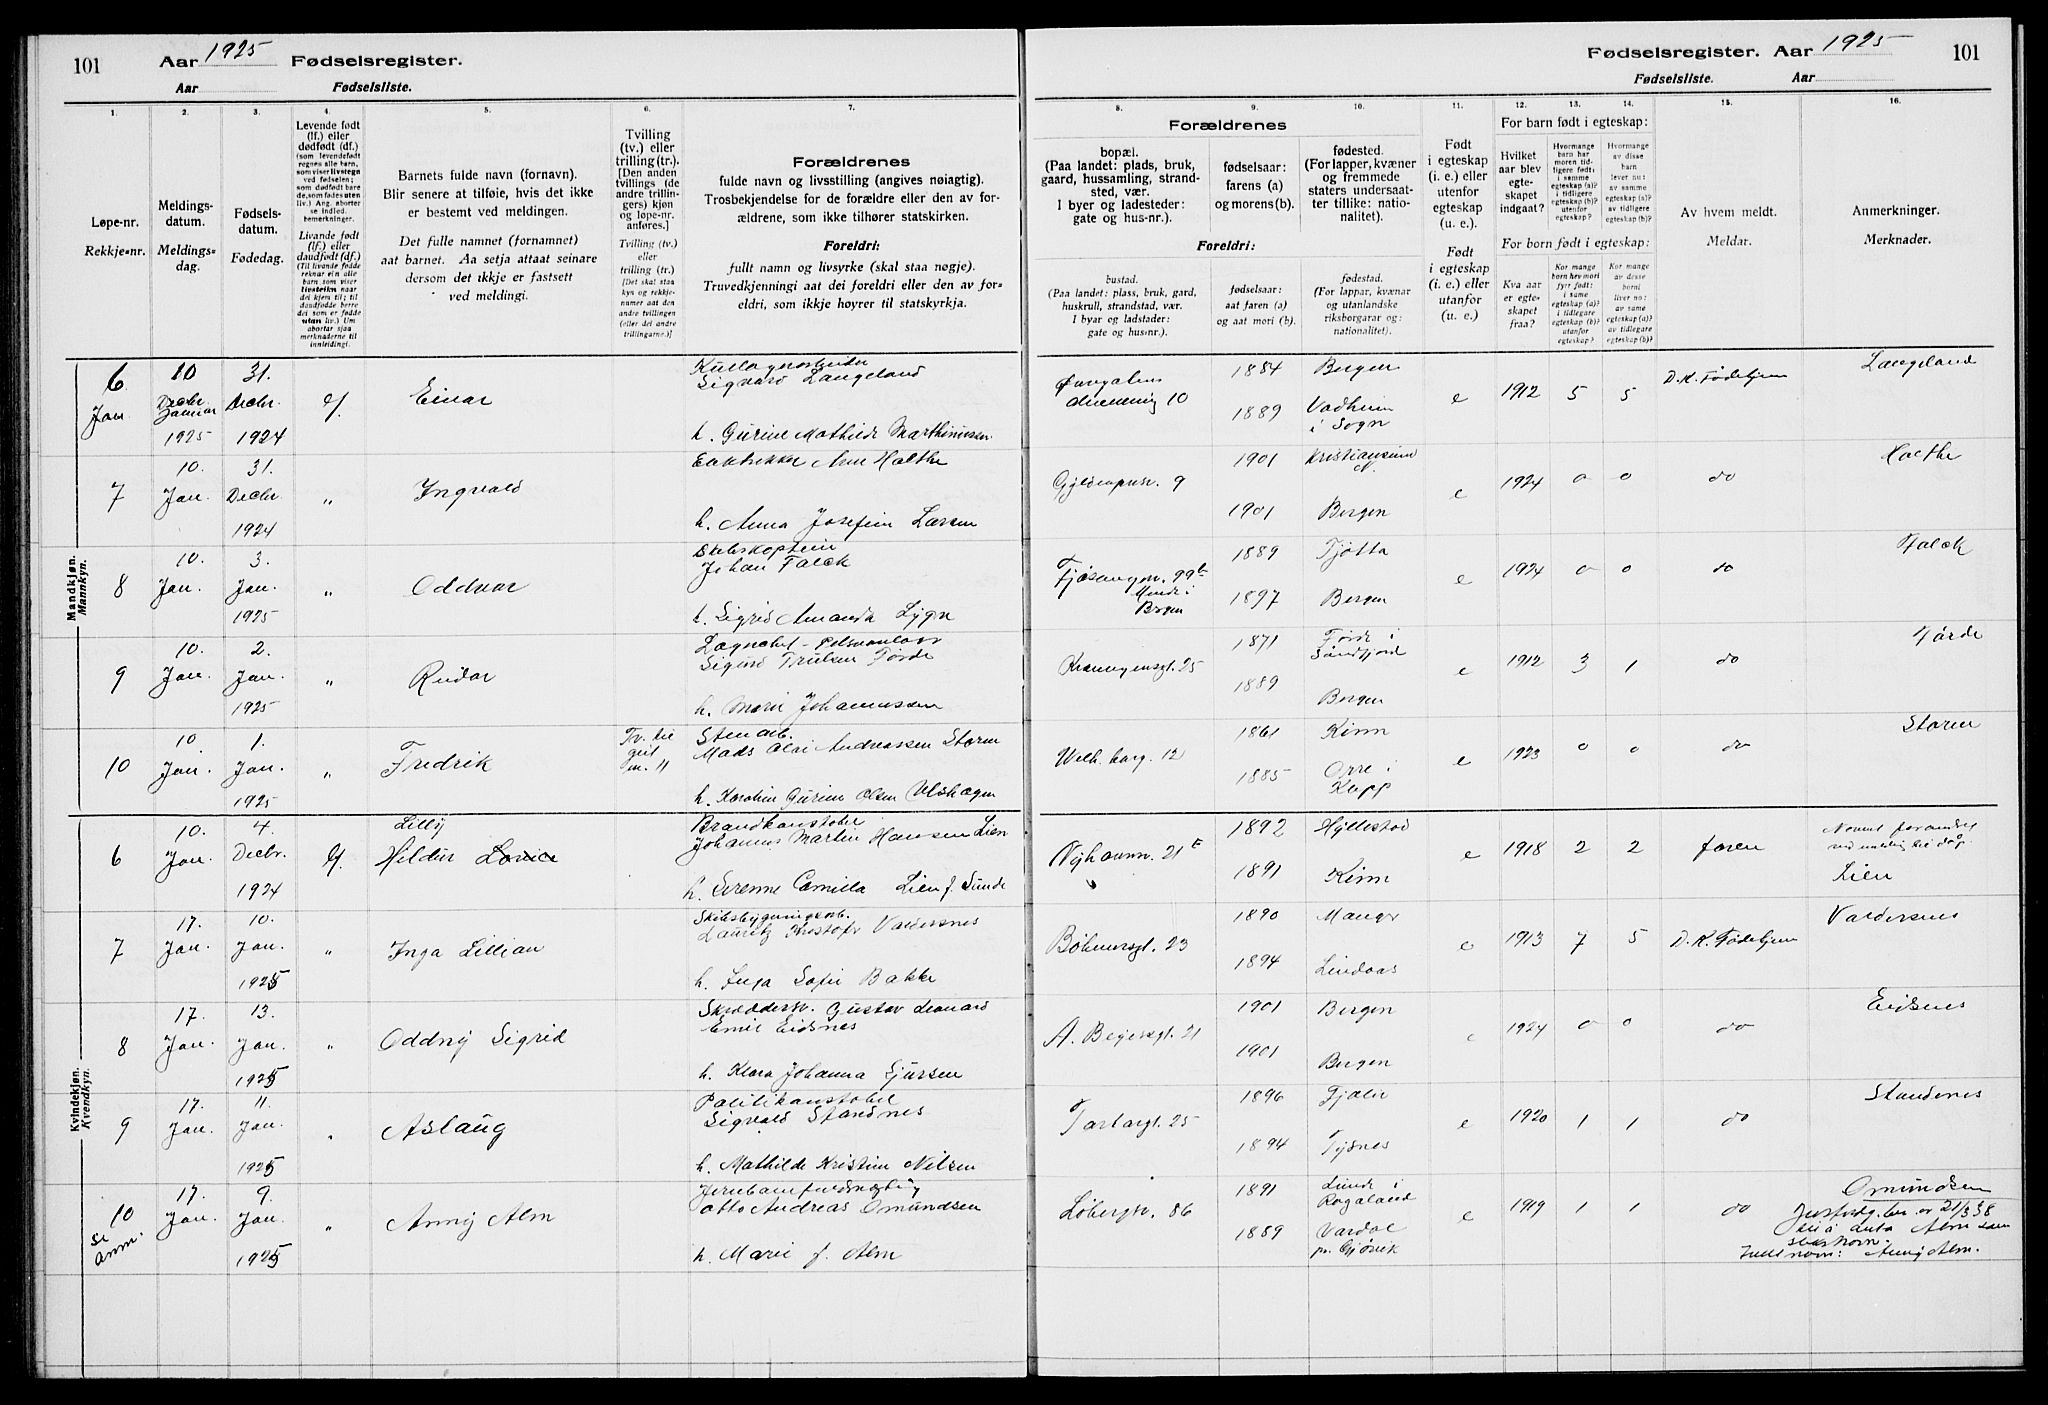 101 Aar 1925 Fødselsregister.
Aar Fødselsliste.
Fødselsregister. Aar 1925 101
Fødselsliste. Aar
1. 2. 3. 4. 5. 6. 7.
Løpe-nr.
Rekkje-nr.
Meldings-
datum.
Meldings-
dag.
Fødsels-
datum.
Fødedag.
Levende født
(lf.) eller
dødfødt (df.)
(som levendefødt
regnes alle barn,
som viser livstegn
ved fødselen;
som dødfødt bare
de, som fødes uten
liv.) Ang. aborter
se indled.
bemerkninger.
Livande fødd
(lf.) eller
daudfødd (df.)
(Til livande fødde
reknar ein alle
born som viser
livsteikn naar
dei kjem til; til
daudfødde berre
dei som er fødde
utan liv.) Um
abortar sjaa
merknaderne til
innleidingi.
Barnets fulde navn (fornavn).
Blir senere at tilføie, hvis det ikke
er bestemt ved meldingen.
Det fulle namnet (fornamnet)
aat barnet. Aa setja attaat seinare
dersom det ikkje er fastsett
ved meldingi.
Tvilling
(tv.) eller
trilling (tr.).
[Den anden
tvillings (de
andre trillin-
gers) kjøn
og løpe-nr.
anføres.]
Tvilling (tv.)
eller
trilling (tr.)
[Det skal staa
kyn og rekkje-
numer aat den
andre tvillingen
(eller dei andre
trillingarne.)]
Forældrenes
fulde navn og livsstilling (angives nøiagtig).
Trosbekjendelse for de forældre eller den av for-
ældrene, som ikke tilhører statskirken.
Foreldri:
fullt namn og livsyrke (skal staa nøgje).
Truvedkjenningi aat dei foreldri eller den av for-
eldri, som ikkje høyrer til statskyrkja.
8. 9. 10. 11. 12. 13. 14. 15. 16.
Forældrenes
bopæl.
(Paa landet: plads, bruk,
gaard, hussamling, strand-
sted, vær.
I byer og ladesteder:
gate og hus-nr.).
fødselsaar:
farens (a)
og morens (b).
fødested.
(For lapper, kvæner
og fremmede
staters undersaat-
ter tillike: natio-
nalitet).
Foreldri:
bustad.
(Paa landet: plass, bruk, gard,
huskrull, strandstad, vær.
I byar og ladstader:
gate og hus-nr.).
fødselsaar:
aat faren (a)
og aat mori (b).
fødestad.
(For lappar, kvænar
og utanlandske
riksborgarar og:
nationalitet).
Født
i egteskap
(i. e.) eller
utenfor
egteskap
(u. e.).
Født
i egteskap
(i. e.) eller
utanfor
(u. e.)
For barn født i egteskap:
Hvilket
aar blev
egte-
skapet
indgaat?
Hvormange
barn har
moren tid-
ligere født:
i samme
egteskap (a)?
i tidligere
egteskap (b)?
utenfor
egteskap?
Hvormange
av disse
barn
lever nu:
av samme
egteskap (a)?
av tidligere
egteskap (b)?
For born født i egteskap:
Kva aar
er egte-
skapet
fraa?
Kor mange
born hev mori
fyrr født:
i same
egteskap (a)?
i tidlegare
egteskap (b)?
utanfor
egteskap?
Kor mange
av disse
borni
liver no:
av same
egteskap (a)?
av tidlegare
egteskap (b)?
Av hvem meldt.
Meldar.
Anmerkninger.
Merknader.
Mandkjøn.
Mannkyn.
6 10 31.
Jan. Decbr. Januar Decbr. Einar
1925 1924
Sigvard Langeland
h. Gurine Mathilde Marthinussen
10 1884 Bergen
1889 Vadheim
i Sogn
e 1912 5 5 D. K. Fødehjem Langeland
7 10. 31.
Jan. Decbr. " Ingvald
1924
Arne Holthe
h. Anna Josefine Larsen
9 1901 Kristiansund
N.
1901 Bergen
e 1924 0 0 do Holthe
8 10. 3.
Jan. Jan. " Oddvar
1925
Johan Falck
h. Sigrid Amanda Lygn
1889 Tjøtta
1897 Bergen
e 1924 0 0 do Falck
9 10. 2.
Jan. Jan. " Reidar
1925
Sigurd Trulsen Førde
h. Marie Johannessen
25 1871 Førde i
Søndfjord
1889 Bergen
e 1912 3 1 do Førde
10 10 1.
Jan. Jan. " Fredrik
1925
Stenarb.
Mads Olai Andreassen Støren
h. Karoline Gurine Olsen Ulshagen
12 1861 Kinn
1885
e 1923 0 0 do Støren
Kvindekjøn.
Kvendkyn.
6 10. 4. Lilly
Jan. Decbr. lf. Hildur
1924
Brandkonstabel
Johannes Martin Hansen Lien
h. Serenne Camilla Lien f. Sunde
Nyhavnsv. 21 E 1892 Hyllestad
1891 Kinn
e 1918 2 2 faren
Lien
7 17. 10.
Jan. Jan. " Inga Lillian
1925
Lauritz Kristofer Valdersnes
h. Inga Sofie Bakke
Bøhmersgt. 23 1890 Manger
1894 Lindaas
e 1913 7 5 D. K. Fødehjem Valdersnes
8 17. 13.
Jan. Jan. " Oddny Sigrid
1925
Skræddersv. Gustav Leonard
Emil Eidsnes
h. Klara Johanna Sjursen
21 1901 Bergen
1901 Bergen
e 1924 0 0 do Eidsnes
9 17. 11.
Jan. Jan. " Aslaug
1925
Politikonstabel
Sigvald Standnes
h. Mathilde Kristine Nilsen
Tartargt. 25 1896 Fjaler
1894 Tysnes
e 1920 1 1 do Standnes
10 17. 9.
Se anm. Jan. Jan. " Anny Alm
1925
Otto Andreas Omundsen
h. Marie f. Alm
Løbergsv. 86 1891 Lunde i
Rogaland
1889 Vardal
pr. Gjøvik
e 1919 1 1 do Omundsen
21/3 38
Alm som
navn: Anny Alm.